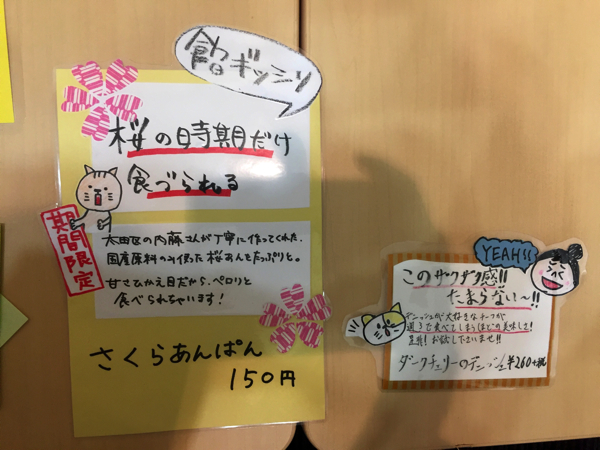 餡ギッシリ
桜の時期だけ
食べられる
期間限定
大田区の内藤さんが丁寧に作ってくれた、
国産原料のみ使った桜あんをたっぷりと。
甘さひかえ目だから、ペロリと
食べられちゃいます!
さくらあんぱん
150円
YEAH!!
このサクサク感!!
たまらない〜!!
デニッシュが大好きなチーフが
週5で食べてしまうほどの美味しさ!
是非!お試し下さいませ!!
ダークチェリーのデニッシュ ¥260+税